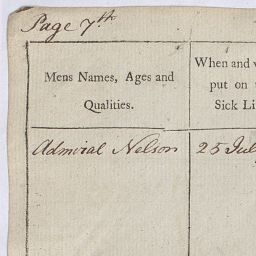 Page 7th
Mens Names, Ages and
Qualities.
When and
put on
Sick Li
Admiral Nelson
25 Jul